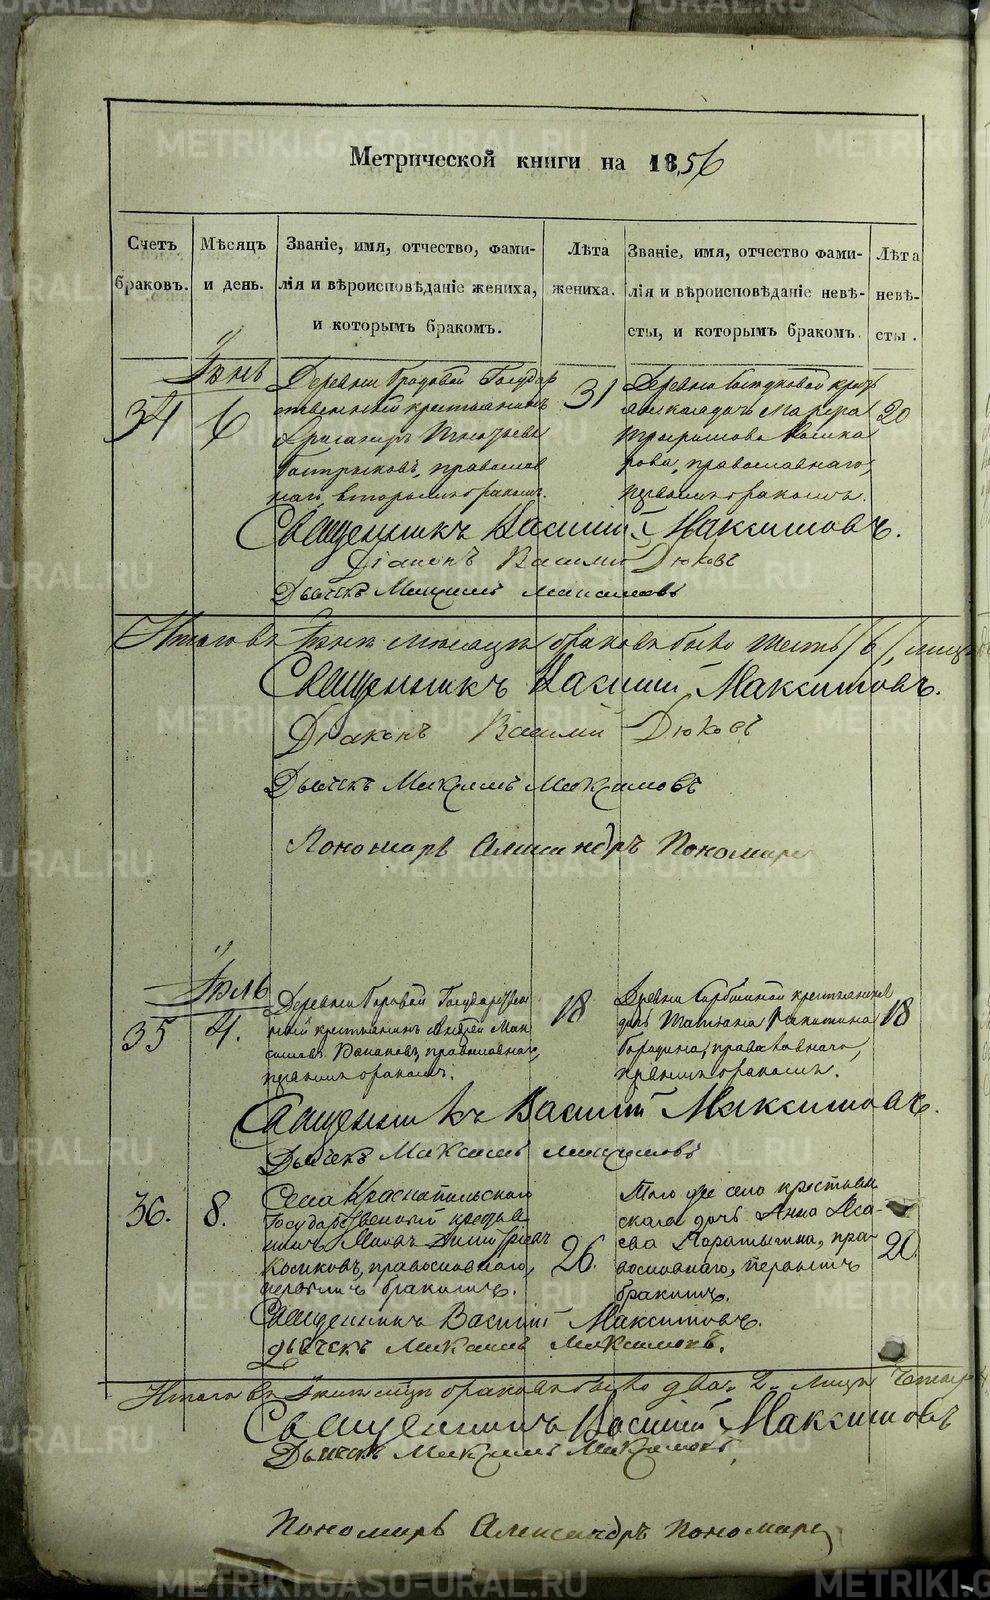 METRIKI.GASO-URAL.RU
Метрической книги на 1856
Счетъ браковъ.
Мѣсяцъ и день.
Званіе, имя, отчество, фами-
лія и вѣроисповѣданіе жениха,
и которымъ бракомъ.
Лѣта жениха.
Званіе, имя, отчество фами-
лія и вѣроисповѣданіе невѣ-
сты, и которымъ бракомъ.
Лѣта невѣ-
сты.
Іюнь
34
6
Деревни Государ
ственный крестьянинъ
православ
наго, вторымъ бракомъ.
31
Деревни
дочь
православнаго,
первымъ бракомъ.
20
Священникъ Василій Максимовъ.
Діаконъ Василій Дюковъ
Дьячекъ Максимъ Максимовъ
Итого въ Іюнѣ мѣсяцѣ браковъ было шесть /6/,
Священникъ Василій Максимовъ.
Діаконъ Василій Дюковъ
Дьячекъ Максимъ Максимовъ
Пономарь Александръ Пономарев
Іюль
35
4.
Деревни Государствен
ный крестьянинъ Андрей Мак
симовъ православнаго,
первымъ бракомъ.
18
Деревни
дочь Татьяна Никитина
Бородина, православнаго,
первымъ бракомъ.
18
Священникъ Василій Максимовъ.
Дьячекъ Максимъ Максимовъ
36.
8.
Села Краснопольскаго
Государственный крестья
нинъ
православнаго,
первымъ бракомъ.
26.
Того же села крестьян
скага дочь Анна Иса-
ева пра-
вославнаго, первымъ
бракомъ.
20.
Священникъ Василій Максимовъ.
Дьячекъ Максимъ Максимовъ.
Итого въ Іюлѣ м-цѣ браковъ было два. 2. лицъ четыре
Священникъ Василій Максимовъ
Дьячекъ Максимъ Максимовъ,
Пономарь Александръ Пономарев